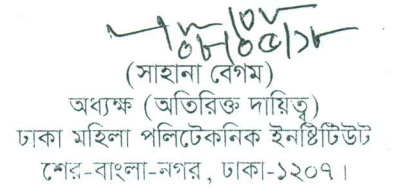 ০৮/০৫/১৮
(সাহানা বেগম)
অধ্যক্ষ (অতিরিক্ত দায়িত্ব)
ঢাকা মহিলা পলিটেকনিক ইনষ্টিটিউট
শের-বাংলা-নগর, ঢাকা-১২০৭।